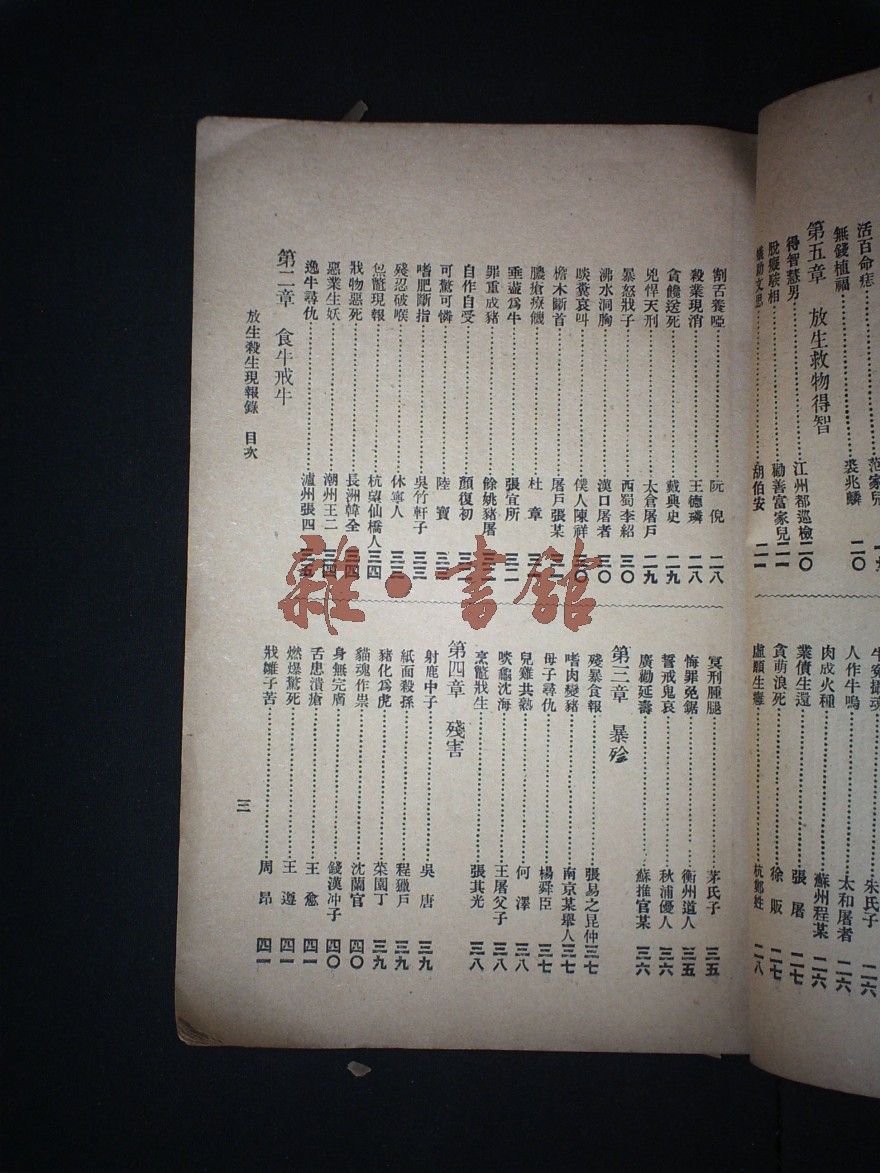 活百命痣……范家兒
無錢植福……裘兆麟 二〇
第五章 放生救物得智
得智慧男……江州都巡檢 二〇
脫癡騃相……勸善富家兒 二一
文思……胡伯安 二一
朱氏子 二六
人作牛鳴……太和屠者 二六
肉成火種……蘇州程某 二六
業債生還……張屠 二七
貪萌浪死……徐販 二七
虛願生癰……杭鄭姓 二八
割舌養啞……阮倪 二八
殺業現消……王德璘 二八
貪饞送死……戴典史 二九
兇悍天刑……太倉屠戶 二九
暴怒戕子……西蜀李紹 三〇
沸水洞胸……漢口屠者 三〇
啖糞哀叫……僕人陳祥 三〇
檐木斷首……屠戶張某
膿瘡療饑……杜章
垂盡為牛……張宜所
罪重成豬……餘姚豬屠
自作自受……顏復初
可驚可憐……陸寶
嗜肥斷指……吳竹軒子 三三
殘忍破喉……休寧人
炰鱉現報……杭望仙橋人 三四
戕物惡死……長洲韓全 三四
惡業生妖……潮州王二 三四
逸牛尋仇……瀘州張四 三五
第二章 食牛戒牛
放生殺生現報錄 目次
冥刑腫腿……茅氏子 三五
悔罪免鋸……衡州道人 三五
誓戒鬼哀……秋浦優人 三六
廣勸延壽……蘇推官某 三六
第三章 暴殄
殘暴食報……張易之昆仲 三七
嗜肉變豬……南京某舉人 三七
母子尋仇……楊舜臣 三七
兒雞共熟……何澤 三八
啖龜沈海……王屠父子 三八
烹鱉戕生……張其光 三八
第四章 殘害
射鹿中子……吳唐 三九
紙面殺孫……程獵戶 三九
豬化為虎……菜園丁 三九
貓魂作祟……沈蘭官 四〇
身無完膚……錢漢冲子 四〇
舌患潰瘡……王愈 四一
燃爆驚死……王遵 四一
戕雛子苦……周昂 四一
三
雜·書館